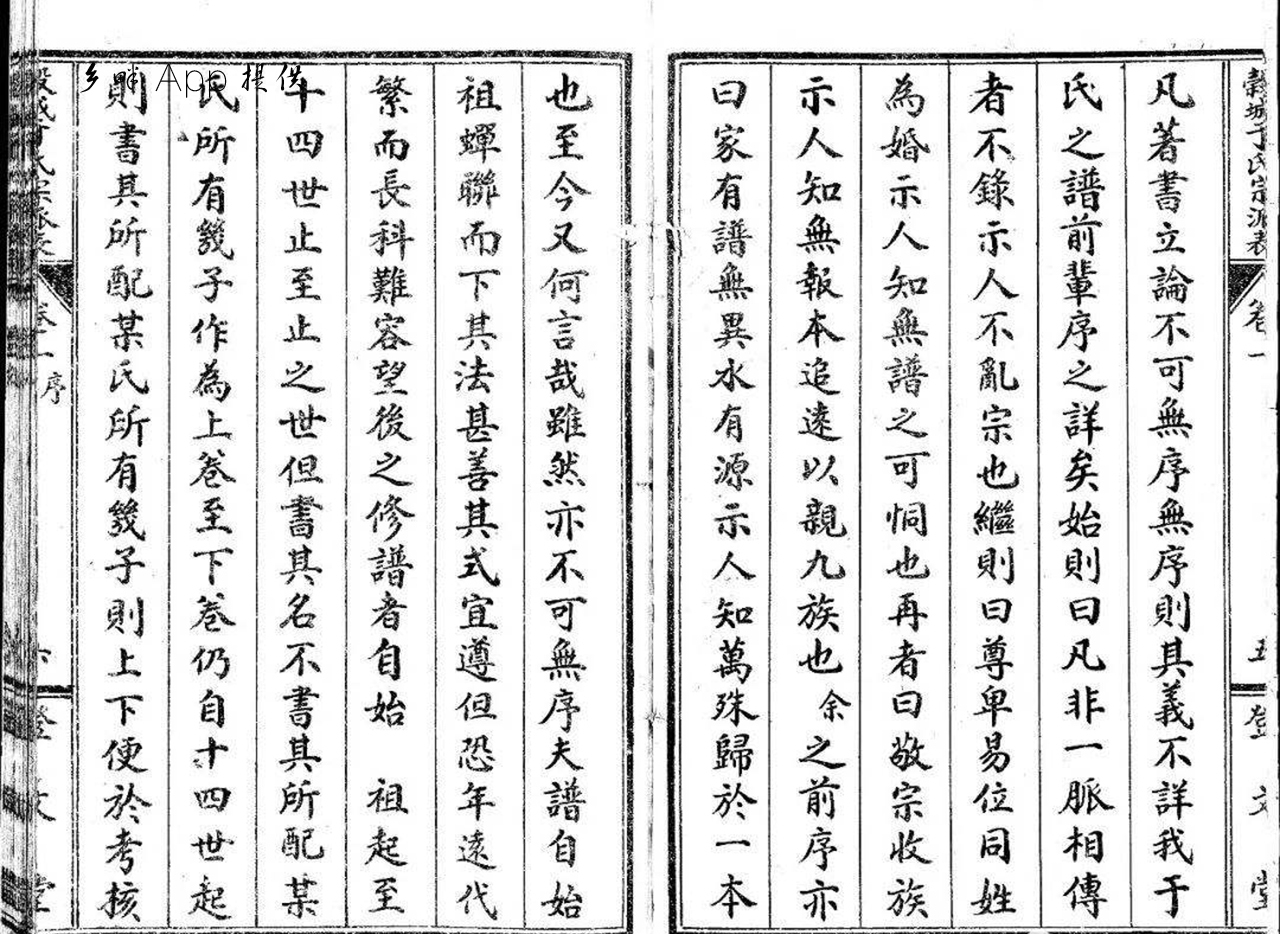 穀城于氏宗派表 卷一 五 登文堂
凡著書立論不可無序無序則其義不詳我于
氏之譜前輩序之詳矣始則曰凡非一脈相傳
者不錄示人不亂宗也繼則曰尊卑易位同姓
為婚示人知無譜之可恫也再者曰敬宗收族
示人知無報本追遠以親九族也余之前序亦
曰家有譜無異水有源示人知萬殊歸於一本
也至今又何言哉雖然亦不可無序夫譜自始
祖蟬聯而下其法甚善其式宜遵但恐年遠代
繁而長科難容望後之修譜者自始 祖起至
十四世止至止之世但書其名不書其所配某
氏所有幾子作為上卷至下卷仍自十四世起
則書其所配某氏所有幾子則上下便於考核
穀城于氏宗派表 卷一 序 登文堂
乡畔App提供